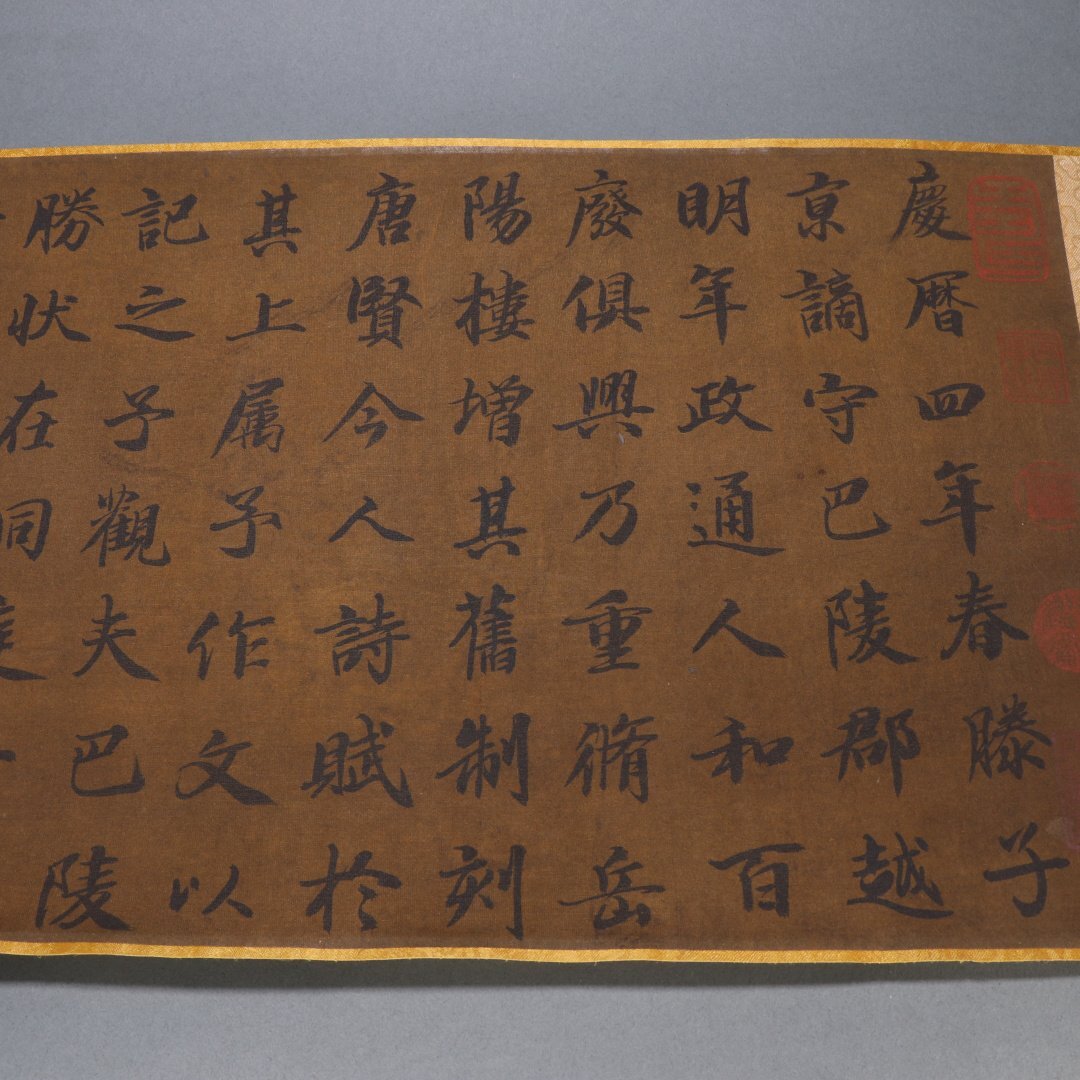 慶曆四年春滕子
京謫守巴陵郡越
明年政通人和百
廢俱興乃重脩岳
陽樓增其舊制刻
唐賢今人詩賦於
其上属予作文以
記之予觀夫巴陵
勝狀在洞